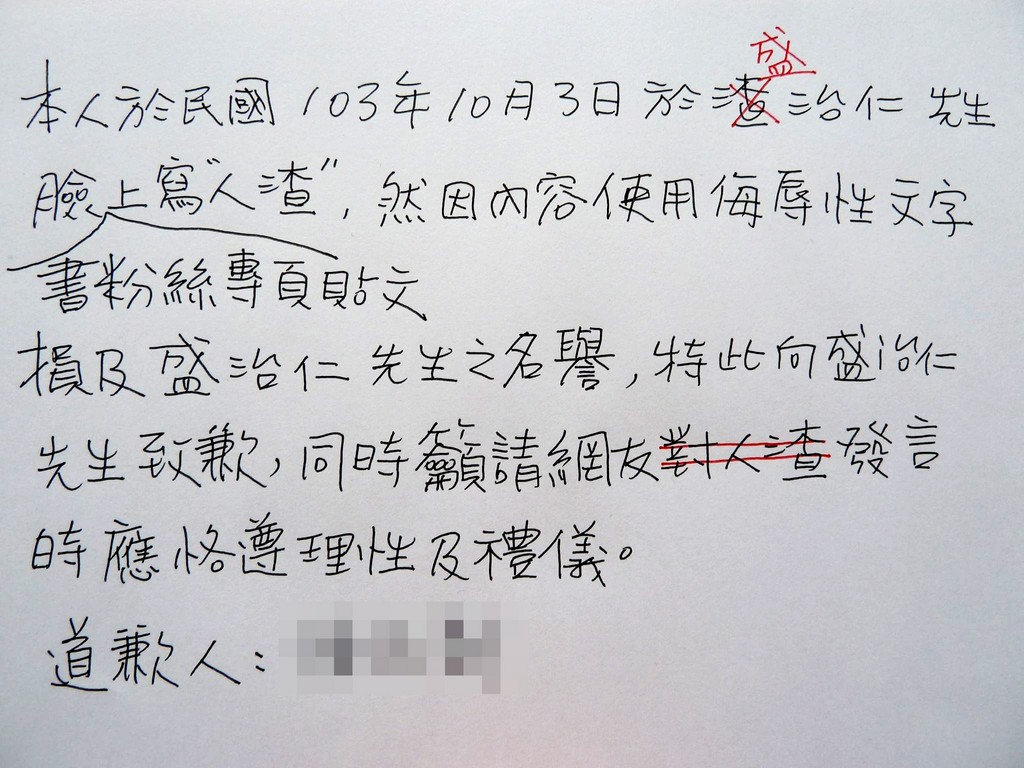 盛
本人於民國103年10月3日於渣治仁先生
臉上寫"人渣"，然因內容使用侮辱性文字
書粉絲專頁貼文
損及盛治仁先生之名譽，特此向盛治仁
先生致歉，同時籲請網友對人渣發言
時應恪遵理性及禮儀。
道歉人：